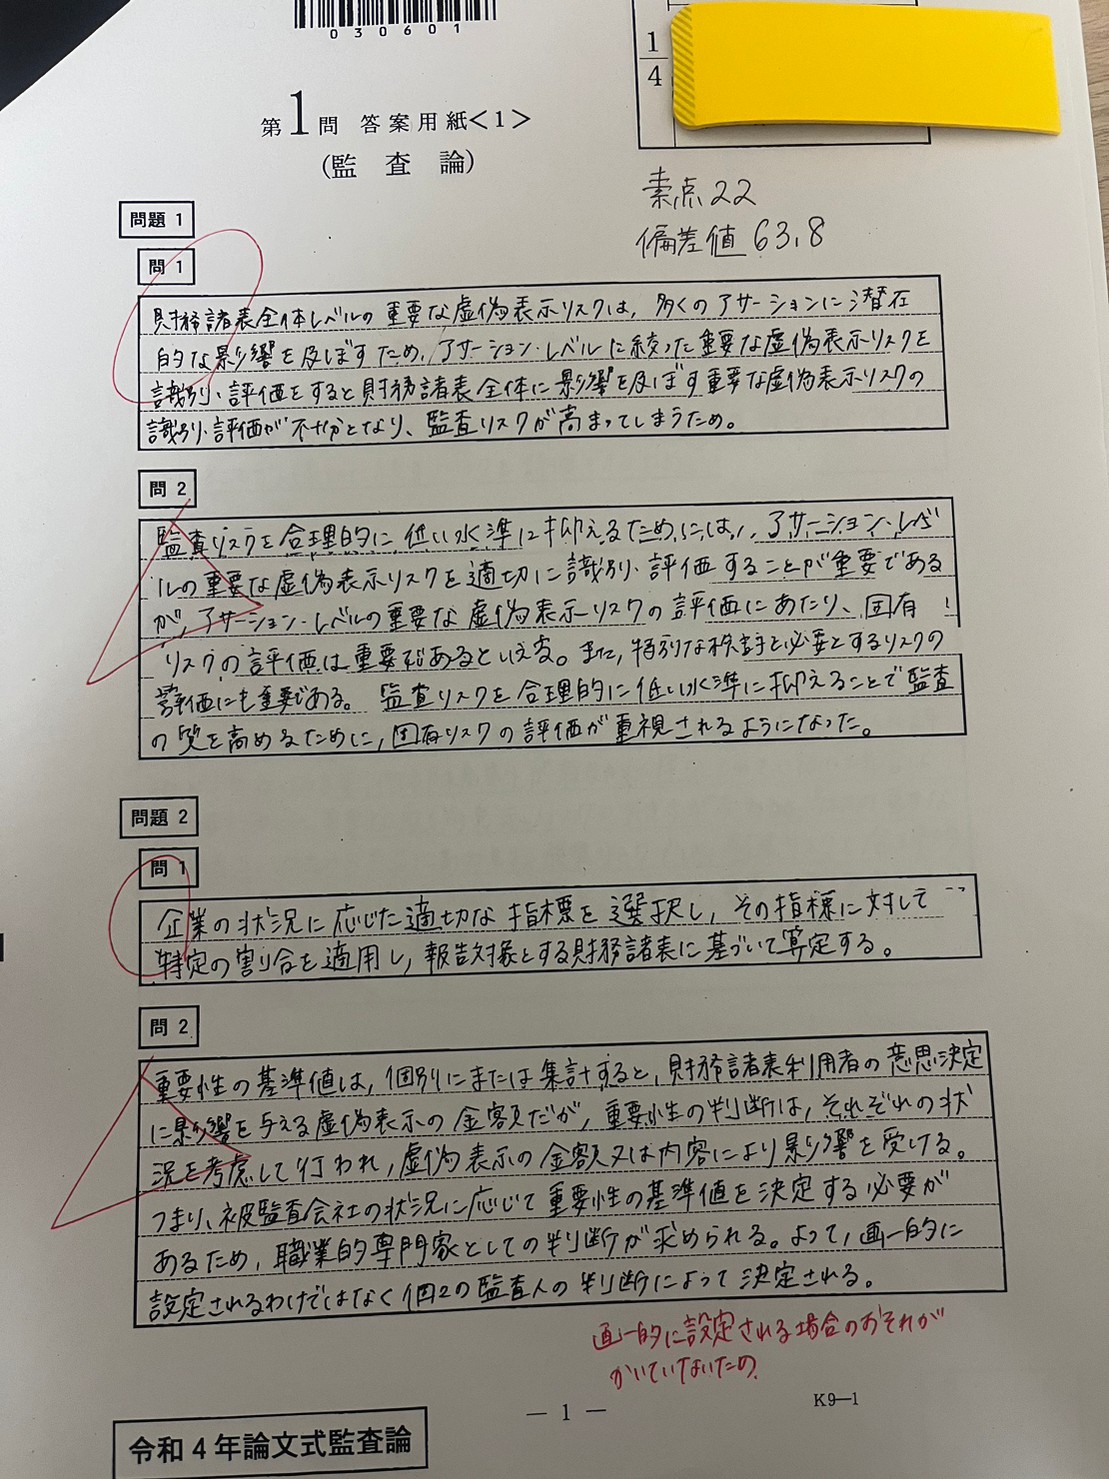 030601
1
4
第1問 答案用紙<1>
(監 査 論)
素点22
偏差値 63.8
問題 1
問 1
財務諸表全体レベルの重要な虚偽表示リスクは、多くのアサーションに潜在
的な影響を及ぼすため、アサーション・レベルに絞った重要な虚偽表示リスクを
識別・評価をすると財務諸表全体に影響を及ぼす重要な虚偽表示リスクの
識別・評価が不十分となり、監査リスクが高まってしまうため。
問 2
監査リスクを合理的に低い水準に抑えるためには、アサーション・レベ
ルの重要な虚偽表示リスクを適切に識別・評価することが重要である
が、アサーション・レベルの重要な虚偽表示リスクの評価にあたり、固有
リスクの評価は重要であるといえる。また、特別な検討を必要とするリスクの
評価にも重要である。監査リスクを合理的に低い水準に抑えることで監査
の質を高めるために、固有リスクの評価が重視されるようになった。
問題 2
問 1
企業の状況に応じた適切な指標を選択し、その指標に対して
特定の割合を適用し、報告対象とする財務諸表に基づいて算定する。
問 2
重要性の基準値は、個別にまたは集計すると、財務諸表利用者の意思決定
に影響を与える虚偽表示の金額だが、重要性の判断は、それぞれの状
況を考慮して行われ、虚偽表示の金額又は内容により影響を受ける。
つまり、被監査会社の状況に応じて重要性の基準値を決定する必要が
あるため、職業的専門家としての判断が求められる。よって、画一的に
設定されるわけではなく個々の監査人の判断によって決定される。
画一的に設定される場合のおそれが
かいていないため
— 1 —
K9—1
令和4年論文式監査論